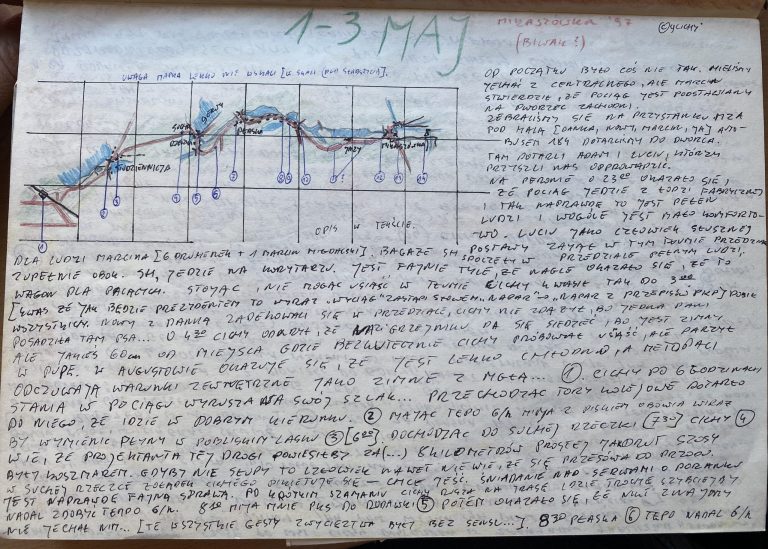 1-3 MAJ
MIKASZÓWKA '97
(BIWAK?)
©CICHY
UWAGA MAPKA LEKKO NIE W SKALI
SUCHA RZECZKA
SERWY
PŁASKA
STUDZIENICZNA
JAZY
MIKASZÓWKA
OPIS W TEKŚCIE.
OD POCZĄTKU BYŁO COŚ NIE TAK, MIELIŚMY
JECHAĆ Z CENTRALNEGO, ALE MARCIN
STWIERDZIŁ, ŻE POCIĄG JEST PODSTAWIANY
NA DWORZEC ZACHODNI.
ZEBRALIŚMY SIĘ NA PRZYSTANKU MZA
POD HALĄ [DANKA, NOWY, MARCIN, JA] AUTO-
BUSEM 189 DOTARLIŚMY DO DWORCA.
TAM DOTARLI ADAM I LUCIU, KTÓRZY
PRZYSZLI NAS ODPROWADZIĆ.
NA PERONIE O 23:00 OKAZAŁO SIĘ,
ŻE POCIĄG JEDZIE Z ŁODZI FABRYCZNEJ
I TAK NAPRAWDĘ TO JEST PEŁEN
LUDZI I WOGÓLE JEST MAŁO KOMFORTO-
WO. LUCIU JAKO CZŁOWIEK SŁUSZNEJ
POSTAWY ZAJĄŁ W TYM TŁUMIE PRZEDZIAŁ
DLA LUDZI MARCINA [6 DRUHENEK + 1 MARCIN MIGDALSKI]. BAGAŻE SH
SPOCZĘŁY W PRZEDZIALE PEŁNYM LUDZI,
ZUPEŁNIE OBOK. SH, JEDZIE NA KORYTARZU. JEST FAJNIE TYLE, ŻE NAGLE OKAZAŁO SIĘ, ŻE TO
WAGON DLA PALĄCYCH. STOJĄC, NIE MOGĄC USIĄŚĆ W TŁUMIE CICHY KWASI TAK DO 3:00
[KWAS ŻE JAK BĘDZIE PREZYDENTEM TO WYRAZ ZASTĄPI SŁOWEM "NAPAR" "NAPAR Z PRZEPISÓW PKP]
WSZYSTKICH. NOWY Z DANKĄ ZADEKOWALI SIĘ W PRZEDZIALE, CICHY NIE ZDĄŻYŁ, BO JEDNA PANI
POSADZIŁA TAM PSA... O 4:30 CICHY ODKRYŁ, ŻE NA GRZEJNIKU DA SIĘ SIEDZIEĆ, BO JEST ZIMNY
ALE JAKIEŚ 60cm OD MIEJSCA GDZIE BEZSKUTECZNIE CICHY PRÓBOWAŁ USIĄŚĆ, ALE PARZYŁ
W PUPĘ. W AUGUSTOWIE OKAZUJE SIĘ, ŻE JEST LEKKO CHŁODNO, A METEOPACI
ODCZUWAJĄ WARUNKI ZEWNĘTRZNE JAKO ZIMNIE Z MGŁĄ... ①. CICHY PO 6 GODZINACH
STANIA W POCIĄGU WYRUSZA NA SWÓJ SZLAK... PRZECHODZĄC TORY KOLEJOWE DOTARŁO
DO NIEGO, ŻE IDZIE W DOBRYM KIERUNKU. ② MAJĄC TEPO 6/h MIJA Z PISKIEM OBUWIA WIRAŻ
BY WYMIENIĆ PŁYNY W POBLISKIM LASKU ③ [6:20]. DOCHODZĄC DO SUCHEJ RZECZKI (7:30) CICHY ④
WIE, ŻE PROJEKTANTA TEJ DROGI POWIESIŁBY ZA (...) 8 KILOMETRÓW PROSTEJ JAK DRUT SZOSY
BYŁY KOSZMAREM. GDYBY NIE SŁUPY TO CZŁOWIEK NAWET NIE WIE, ŻE SIĘ PRZESUWA DO PRZODU.
W SUCHEJ RZECZCE ŻOŁĄDEK CICHEGO - CHCE JEŚĆ. ŚNIADANIE NAD SERWAMI O PORANKU
JEST NAPRAWDĘ FAJNĄ SPRAWĄ. PO KRÓTKIM SZAMANIU CICHY RUSZA NA TRASĘ IDZIE TROCHĘ SZYBCIEJ
NADAL ZDOBYŁ TEMPO 6/h. 8:10 MIJA MNIE PKS DO RUDAWKI ⑤ POTEM OKAZAŁO SIĘ, ŻE NIKT ZNAJOMY
NIE JECHAŁ NIM... [TE WSZYSTKIE GESTY ZWYCIĘSTWA BYŁY BEZ SENSU...]. 8:30 PŁASKA ⑥ TEPO NADAL 6/h